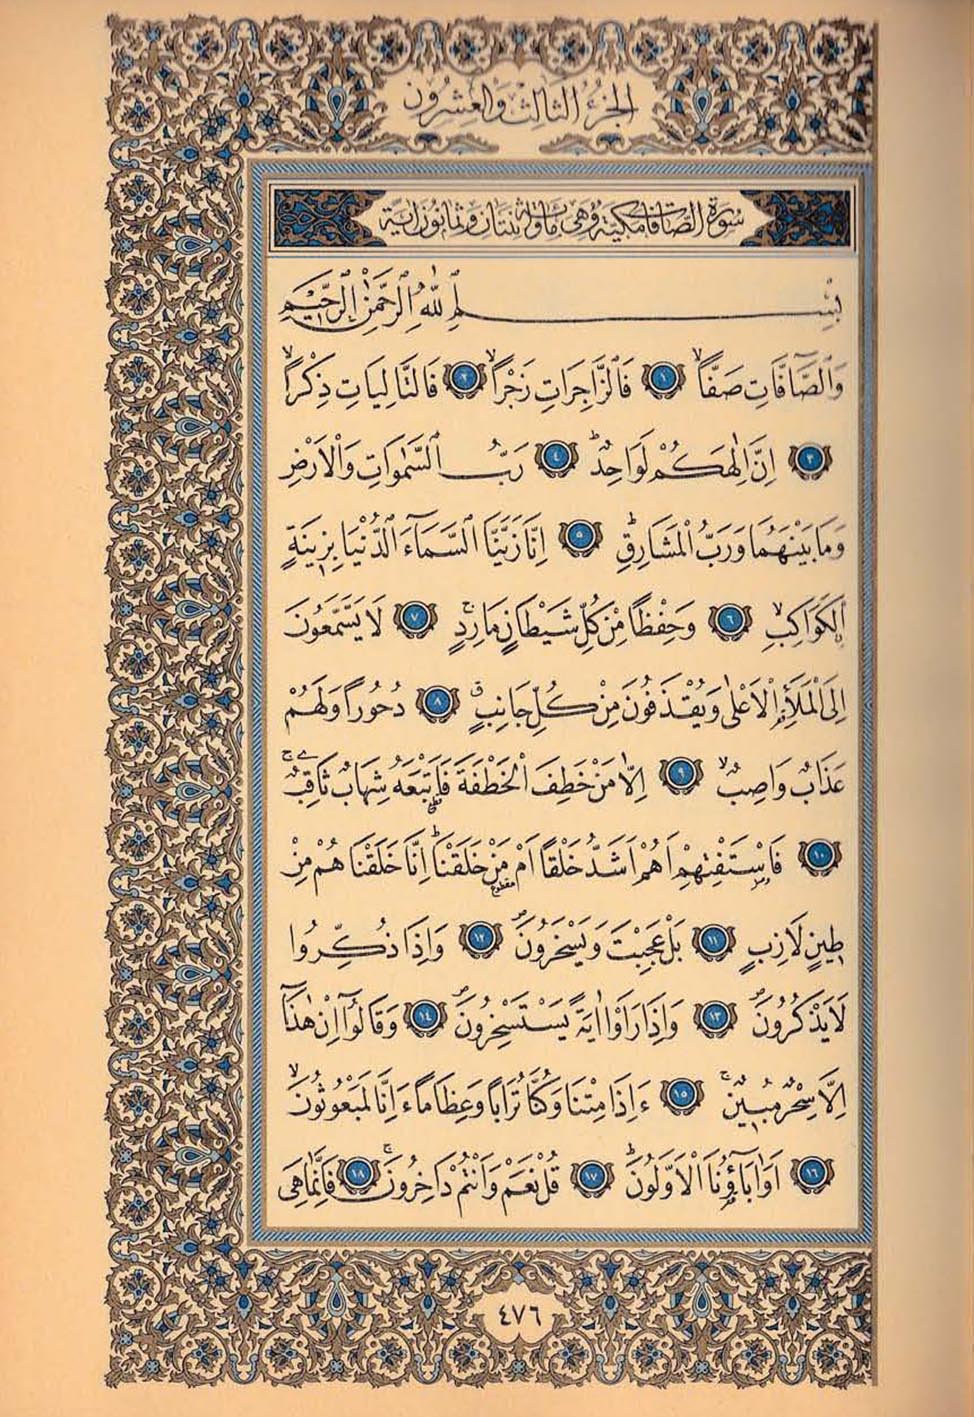 الجزء الثالث والعشرون
سورة الصافات مكية وهي مائة واثنتان وثمانون آية
بِسْمِ اللّٰهِ الرَّحْمٰنِ الرَّحِيمِ
وَالصَّٓافَّاتِ صَفًّاۙ ١ فَالزَّاجِرَاتِ زَجْرًاۙ ٢ فَالتَّالِيَاتِ ذِكْرًاۙ
٣ اِنَّ اِلٰهَكُمْ لَوَاحِدٌۜ ٤ رَبُّ السَّمٰوَاتِ وَالْاَرْضِ
وَمَا بَيْنَهُمَا وَرَبُّ الْمَشَارِقِۜ ٥ اِنَّا زَيَّنَّا السَّمَٓاءَ الدُّنْيَا بِزِينَةٍ
اۨلْكَوَاكِبِۙ ٦ وَحِفْظًا مِنْ كُلِّ شَيْطَانٍ مَارِدٍۚ ٧ لَا يَسَّمَّعُونَ
اِلَى الْمَلَأِ الْاَعْلٰى وَيُقْذَفُونَ مِنْ كُلِّ جَانِبٍۗ ٨ دُحُورًا وَلَهُمْ
عَذَابٌ وَاصِبٌۙ ٩ اِلَّا مَنْ خَطِفَ الْخَطْفَةَ فَاَتْبَعَهُ شِهَابٌ ثَاقِبٌ
١٠ فَاسْتَفْتِهِمْ اَهُمْ اَشَدُّ خَلْقًا اَمْ مَنْ خَلَقْنَاۜ اِنَّا خَلَقْنَاهُمْ مِنْ
طِينٍ لَازِبٍ ١١ بَلْ عَجِبْتَ وَيَسْخَرُونَۖ ١٢ وَاِذَا ذُكِّرُوا
لَا يَذْكُرُونَۖ ١٣ وَاِذَا رَاَوْا اٰيَةً يَسْتَسْخِرُونَۖ ١٤ وَقَالُٓوا اِنْ هٰذَٓا
اِلَّا سِحْرٌ مُبِينٌۚ ١٥ ءَاِذَا مِتْنَا وَكُنَّا تُرَابًا وَعِظَامًا ءَاِنَّا لَمَبْعُوثُونَۙ
١٦ اَوَاٰبَٓاؤُنَا الْاَوَّلُونَۜ ١٧ قُلْ نَعَمْ وَاَنْتُمْ دَاخِرُونَۚ ١٨ فَاِنَّمَا هِيَ
٤٧٦